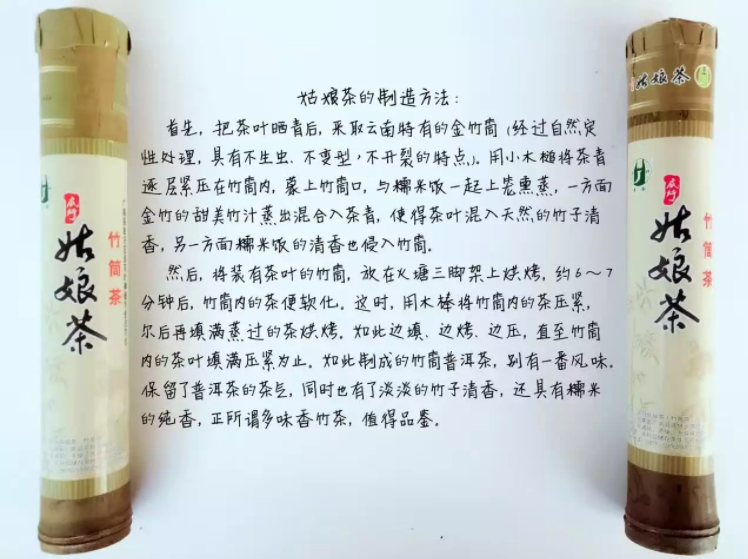 姑娘茶的制造方法：
首先，把茶叶晒青后，采取云南特有的金竹筒（经过自然定
性处理，具有不生虫、不变型，不开裂的特点）。用小木槌将茶青
逐层紧压在竹筒内，蒙上竹筒口，与糯米饭一起上笼熏蒸，一方面
金竹的甜美竹汁蒸出混合入茶青，使得茶叶混入天然的竹子清
香，另一方面糯米饭的清香也侵入竹筒。
然后，将装有茶叶的竹筒，放在火塘三脚架上烘烤，约6～7
分钟后，竹筒内的茶便软化。这时，用木棒将竹筒内的茶压紧，
尔后再填满蒸过的茶烘烤。如此边填、边烤、边压，直至竹筒
内的茶叶填满压紧为止。如此制成的竹筒普洱茶，别有一番风味。
保留了普洱茶的茶气，同时也有了淡淡的竹子清香，还具有糯米
的纯香，正所谓多味香竹茶，值得品鉴。
姑娘茶
竹筒茶
姑娘茶
姑娘茶
竹筒茶